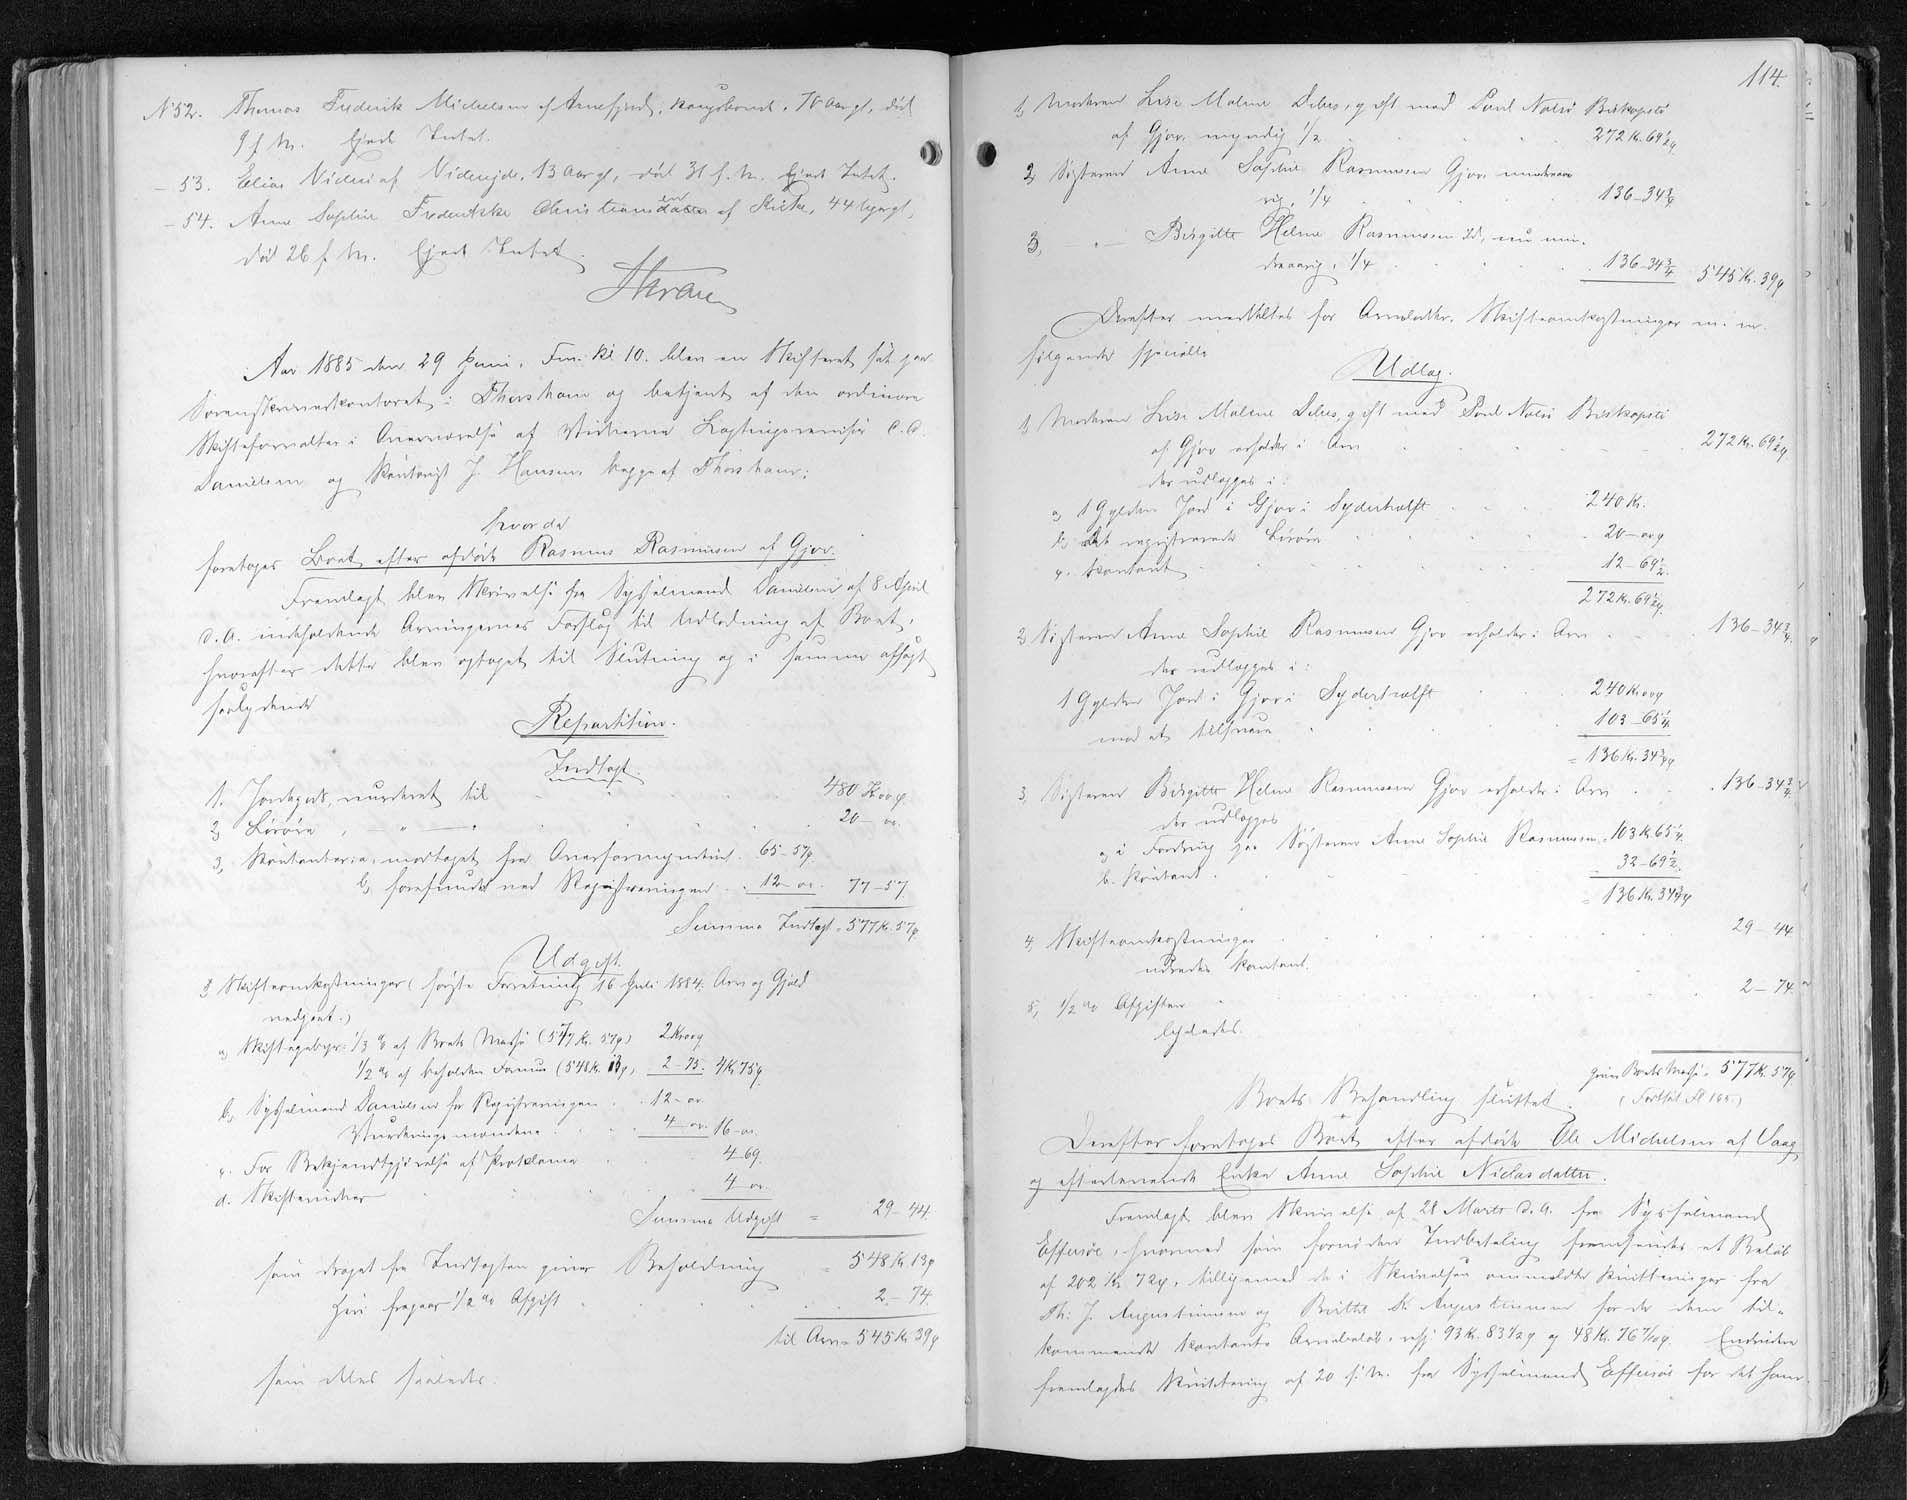 N 52. Thomas Frederik Michelsen af Arnefjord, kongsbonde, 70 Aar gl, død
9 f. M. Ejede Intet.
- 53. Elias Niclas af Viderejde, 13 Aar gl, død 31 f. M. Ejede Intet.
- 54. Anne Sophie Frederikke Christiansdatter af 44 Aar gl,
død 26 f. M. Ejede Intet.
Aar 1885 den 29 Juni, Fm. Kl 10. blev en Skifteret sat paa
Sorenskriverkontoret i Thorshavn og betjent af den ordinære
Skifteforvalter i Overværelse af Vidnerne Lagtingsrevisor C. A.
Danielsen og Kontorist J. Hansen begge af Thorshavn;
hvorda
foretoges Boet efter afdøde Rasmus Rasmussen af Gjov.
Fremlagt blev Skrivelse fra Sysselmand Danielsen af 8 April
d. A. indeholdende Arvingernes Forslag til Udlodning af Boet,
hvorefter dette blev optaget til Slutning og i samme afsagt
saalydende
Repartition.
Indtægt
1. Jordegods, vurderet til 480 Kr oo ø.
2) Løsøre, - " - 20 - oo.
3, Kontanter: a, modtaget fra Overformynderiet 65-57ø
b, forefundet ved Registreringen 12- oo. 77-57.
Summa Indtægt = 577 Kr. 57 ø.
Udgift.
1) Skifteomkostninger (første Forretning 16 Juli 1884. Arv og Gjæld
vedgaaet.)
a) Skiftegebyr: 1/3 % af Boets Masse (577 Kr. 57 ø) 2 Kr oo ø
1/2 % af beholden Formue (548 Kr. 13 ø, 2-75. 4 Kr 75 ø.
b, Sysselmand Danielsen for Registreringen 12- oo.
Vurderingsmændene: 4 - oo. 16- oo.
c. For Bekjendtgjørelse af Proklama 4 69.
d. Skiftevidner 4 - oo.
Summa Udgift = 29 - 44.
som draget fra Indtægten giver Beholdning = 548 Kr. 13 ø
heri fragaar 1/2 % Afgift 2. - 74.
til Arv = 545 Kr 39 ø
som deles saaledes:
114.
1, Moderen Lise Malene Debes, gift med Poul Nolsø Biskopstø
af Gjov, myndig 1/2 272 Kr. 69 1/2 ø.
2, Søsteren Anne Sophie Rasmussen Gjov, mindreaa-
rig, 1/4 136-34 3/4
3, - " - Birgitte Helene Rasmussen ibd, nu min-
dreaarig, 1/4 136-34 3/4 545 Kr. 39 ø
Derefter meddeltes for Arvelodder, Skifteomkostninger m. m.
følgende specielle
Udlæg.
1) Moderen Lise Malene Debes, gift med Poul Nolsø Biskopstø
af Gjov erholder i Arv 272 Kr. 69 1/2 ø.
der udlægges i:
a, 1 Gylden Jord i Gjov i Syderhalft 240 Kr.
b, Det registrerede Løsøre 20 - oo ø
c. Kontant 12 - 69 1/2.
272 Kr. 69 1/2 ø.
2, Søsteren Anne Sophie Rasmussen Gjov erholder i Arv 136 - 34 3/4.
der udlægges i:
1 Gylden Jord i Gjov i Syderhalft 240 Kr oo ø
mod at tilsvare 103 - 65 1/4.
= 136 Kr. 34 3/4 ø
3, Søsteren Birgitte Helene Rasmussen Gjov erholder i Arv 136-34 3/4.
der udlægges
a, i Fordring paa Søsteren Anne Sophie Rasmussen 103 Kr 65 1/4.
b. Kontant 32 - 69 1/2.
= 136 Kr. 34 3/4 ø
4, Skifteomkostninger 29 - 44
udredes kontant.
5, 1/2 % Afgiften 2 - 74.
ligeledes.
giver Boets Masse = 577 Kr. 57 ø
(Fortsat Fol 165.)
Boets Behandling sluttet.
Derefter foretoges Boet efter afdøde Ole Michelsen af Vaag
og efterlevende Enke Anne Sophie Niclasdatter.
Fremlagt blev Skrivelse af 28 Marts d. A. fra Sysselmand
Effersøe, hvormed som fornøden Indbetaling fremsendes et Beløb
af 202 Kr. 72 ø, tilligemed de i Skrivelsen ommeldte Kvitteringer fra
Th: J. Augustinussen og Augustinussen for de dem til-
kommende kontante Arvebeløb, resp: 93 Kr. 83 1/2 ø og 48 Kr. 76 ø. Endvidere
fremlagdes Kvittering af 20 f. M. fra Sysselmand Effersøe for det ham